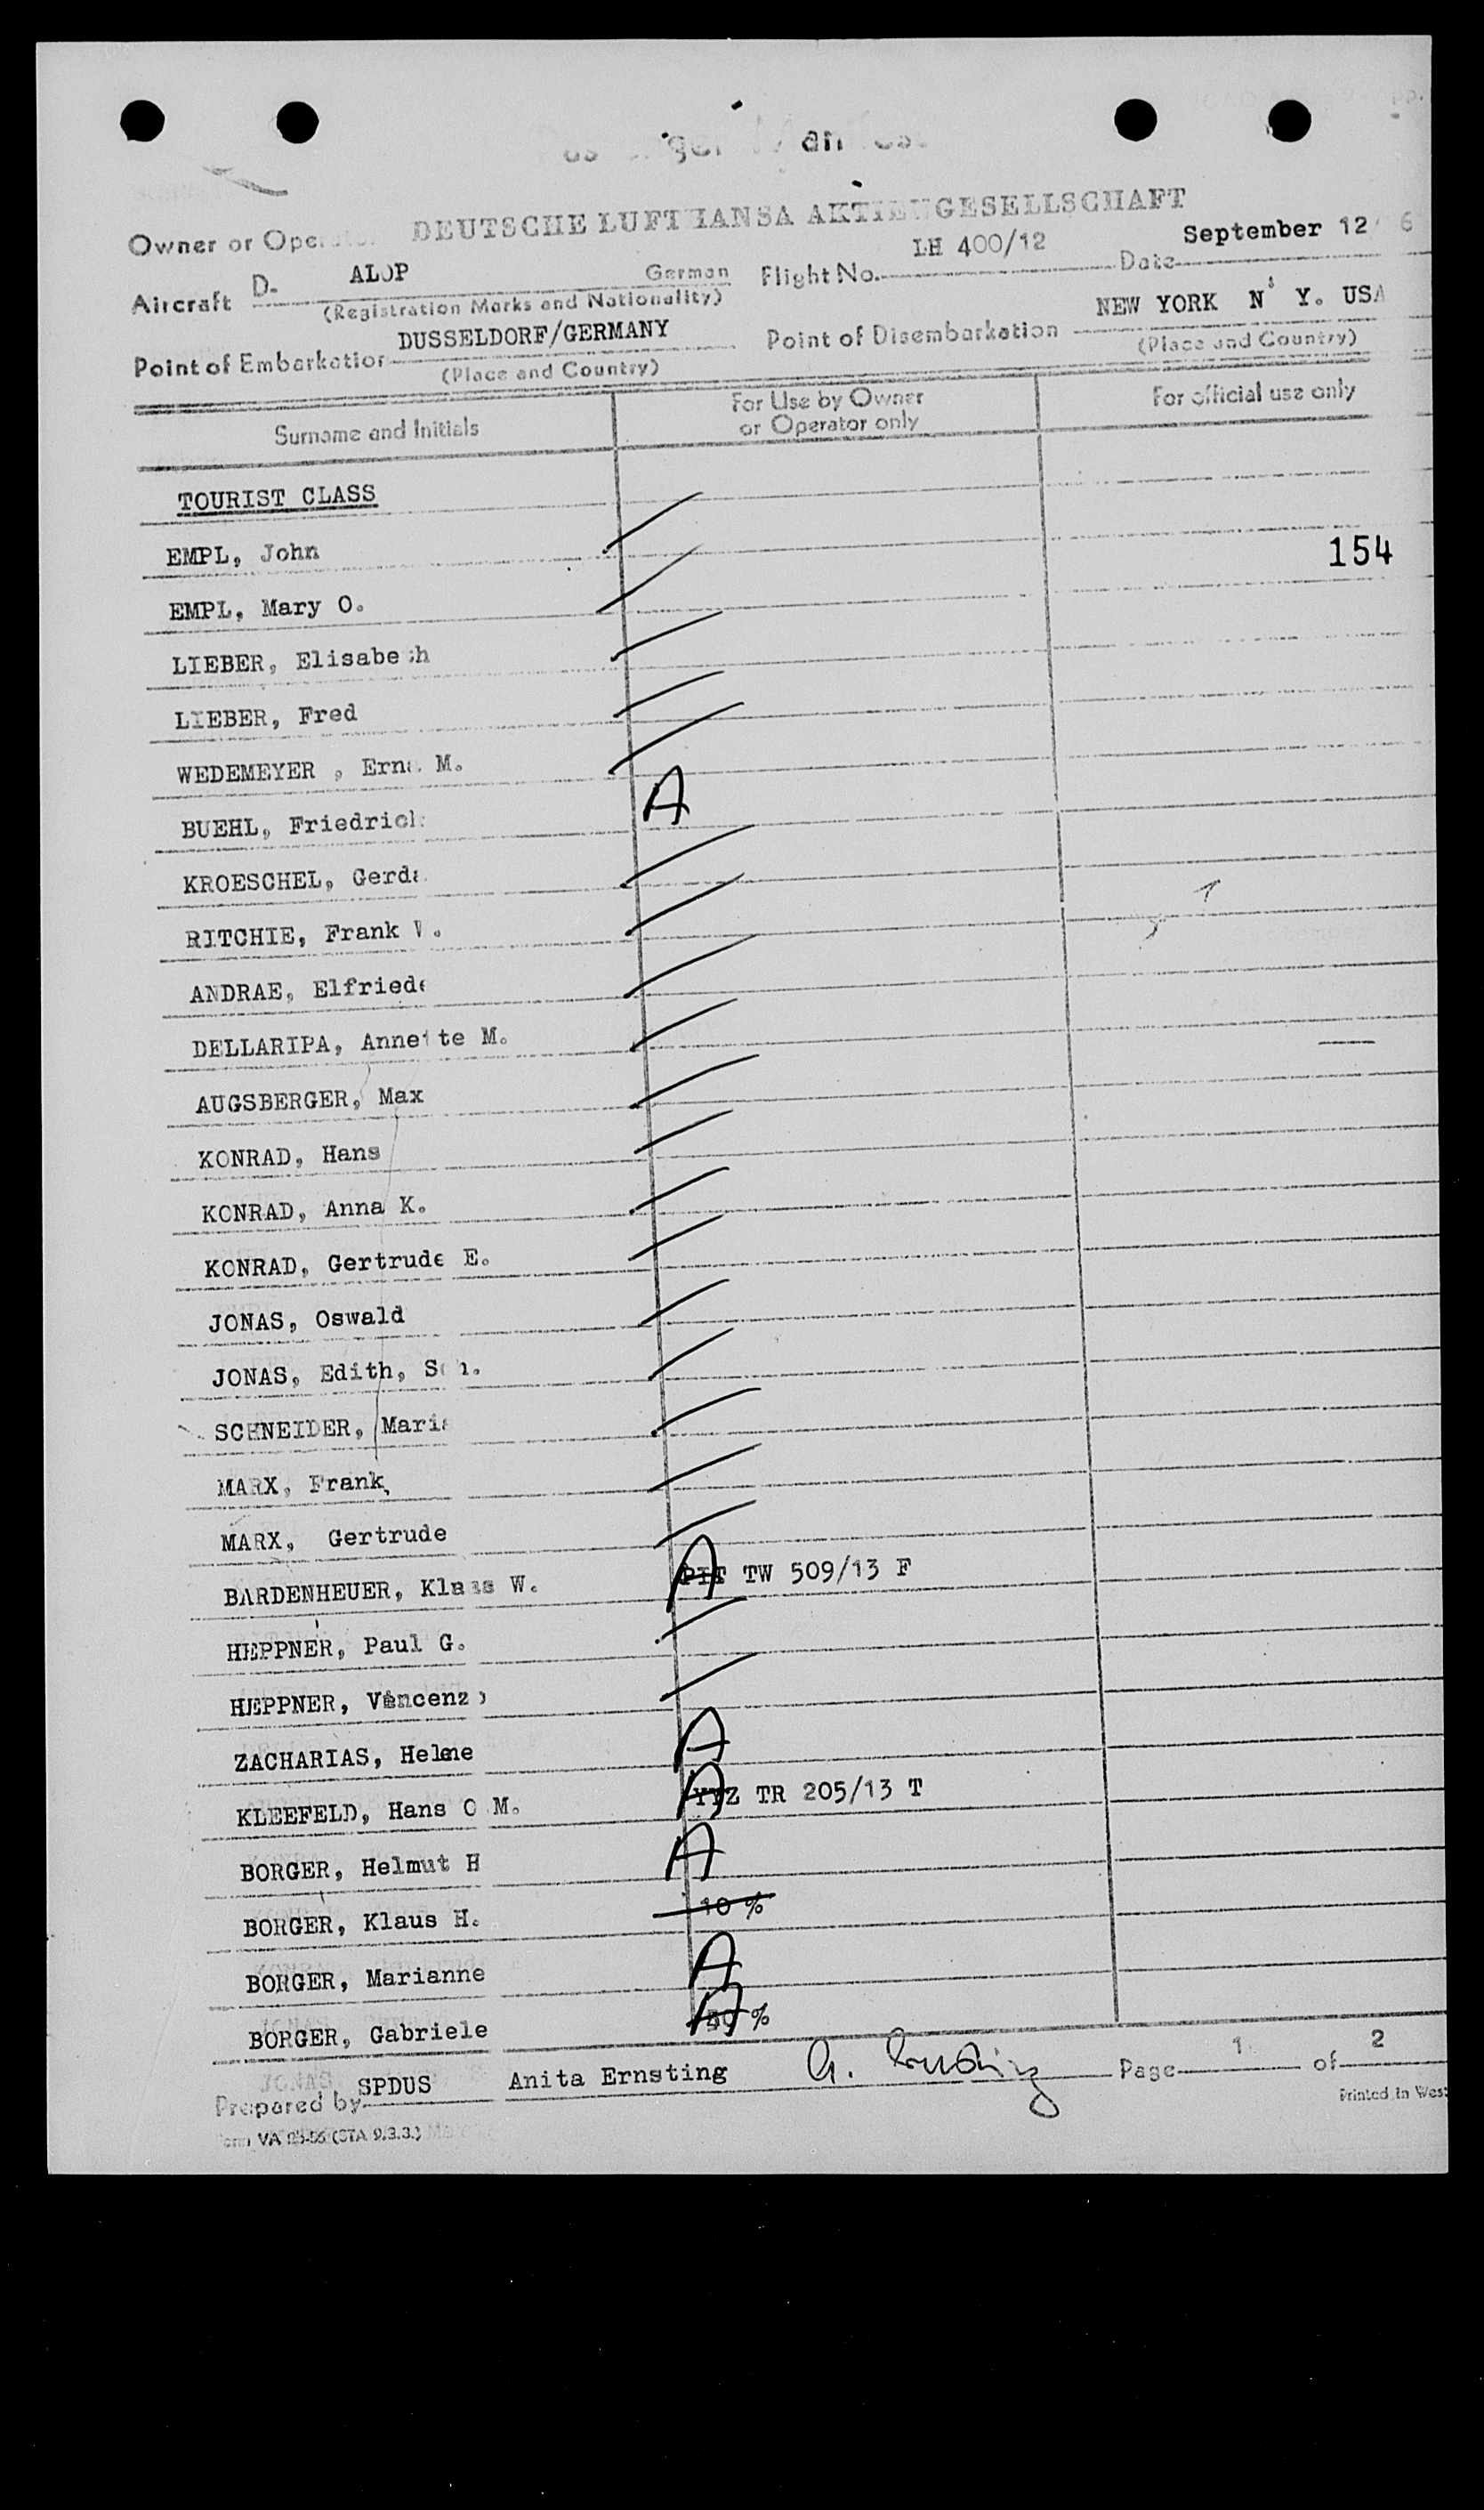 DEUTSCHE LUFTHANSA AKTIENGESELLSCHAFT
Owner or Operator
LH 400/12 September 12
Aircraft D- ALOP German Flight No. Date
(Registration Marks and Nationality)
DUSSELDORF/GERMANY NEW YORK N Y. USA
Point of Embarkation Point of Disembarkation
(Place and Country) (Place and Country)
Surname and Initials For Use by Owner or Operator only For official use only
TOURIST CLASS
EMPL, John 154
EMPL, Mary O.
LIEBER, Elisabeth
LIEBER, Fred
WEDEMEYER , Erna M.
BUEHL, Friedrich A
KROESCHEL, Gerda
RITCHIE, Frank W.
ANDRAE, Elfriede
DELLARIPA, Annette M.
AUGSBERGER, Max
KONRAD, Hans
KONRAD, Anna K.
KONRAD, Gertrude E.
JONAS, Oswald
JONAS, Edith, Sch.
SCHNEIDER, Maria
MARX, Frank,
MARX, Gertrude
BARDENHEUER, Klaus W. A PIT TW 509/13 F
HEPPNER, Paul G.
HEPPNER, Vincenzo
ZACHARIAS, Helene A
KLEEFELD, Hans O M. A YYZ TR 205/13 T
BORGER, Helmut H A
BORGER, Klaus H. 10 %
BORGER, Marianne A
BORGER, Gabriele A 50 %
Prepared by SPDUS Anita Ernsting A. Ernsting Page 1 of 2
Printed in West
Form VA 05-56 (STA 9.3.3.)